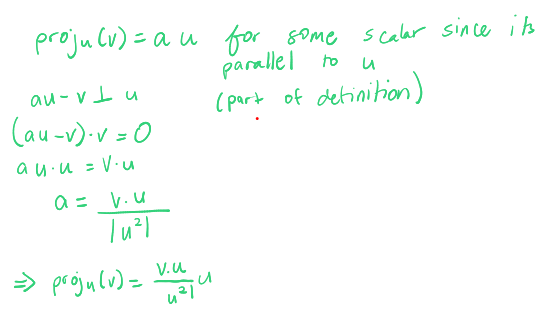 proju(v) = a u for some scalar since its
parallel to u
(part of definition)
au - v ⊥ u
(au - v) · v = 0
a u · u = v · u
a = v · u / |u²|
⇒ proju(v) = v.u / u²| u